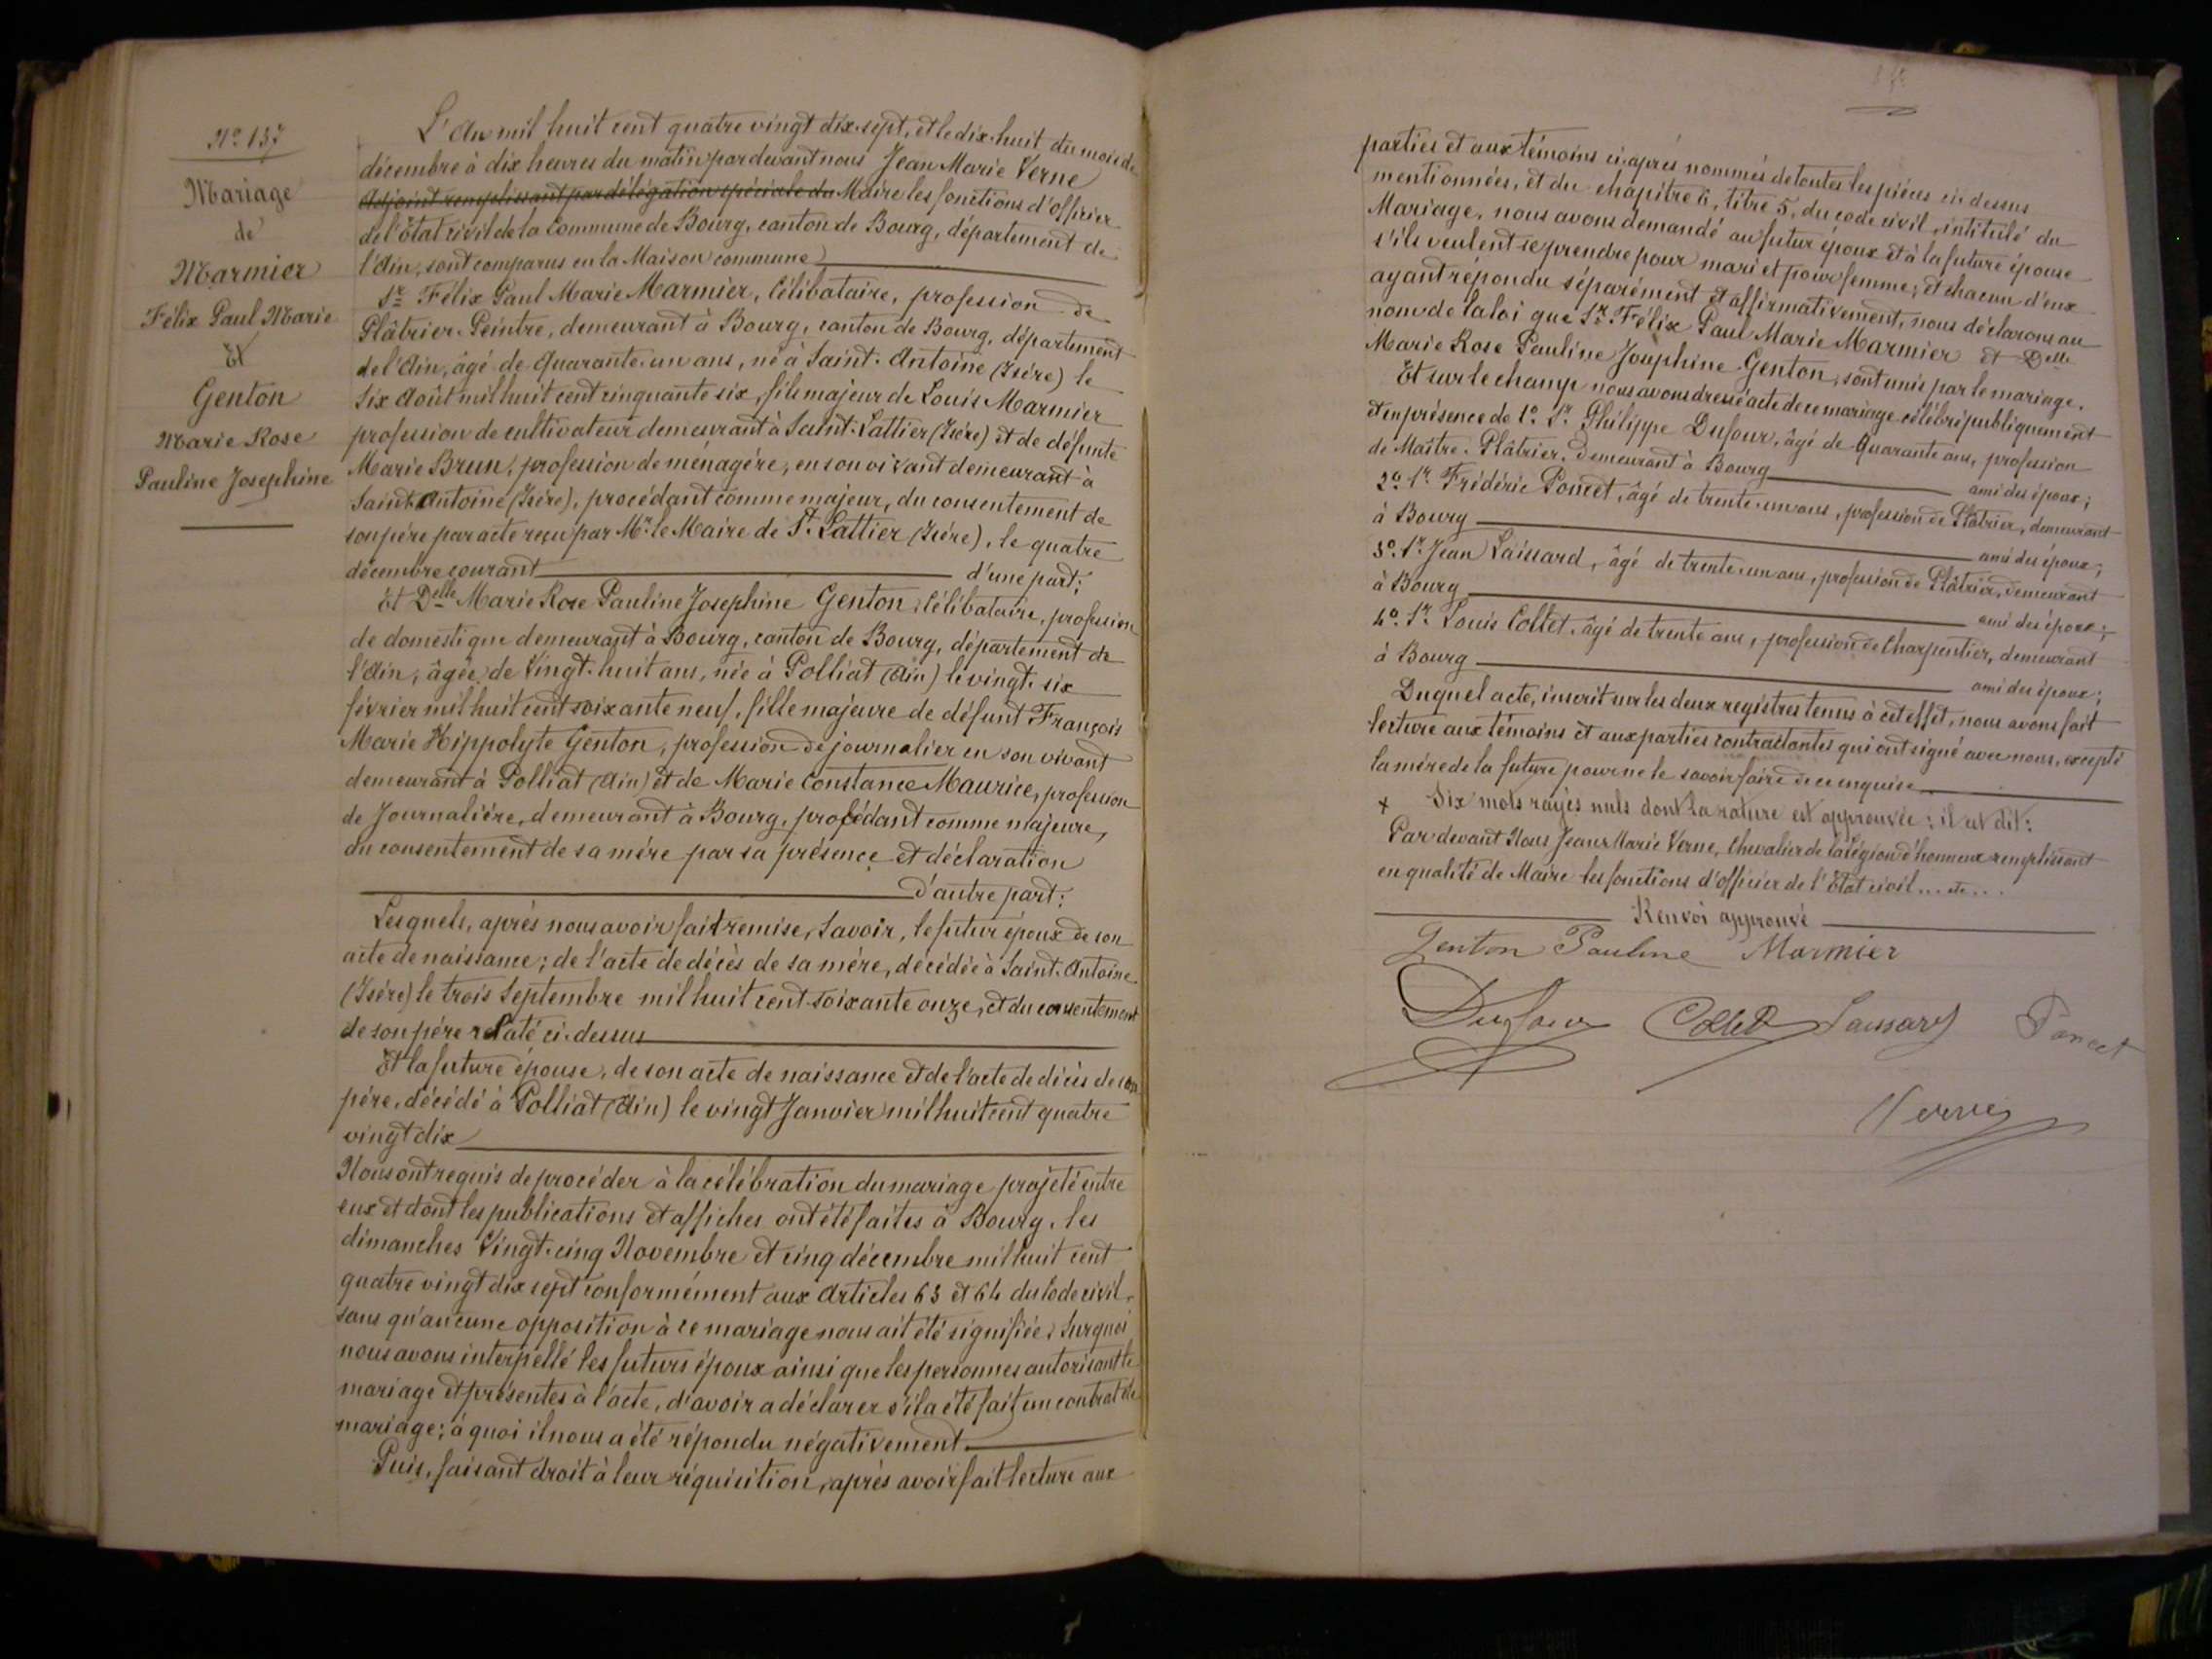 N° 137
Mariage
de
Marmier
Félix Paul Marie
Et
Genton
Marie Rose
Pauline Josephine
L'An mil huit cent quatre vingt dix-sept, et le dix-huit du mois de
décembre à dix heures du matin par devant nous Jean Marie Verne
Adjoint remplissant par délégation spéciale du Maire les fonctions d'officier
de l'État civil de la Commune de Bourg, canton de Bourg, département de
l'Ain, sont comparus en la Maison commune
Sr Félix Paul Marie Marmier, Célibataire, profession de
Plâtrier-Peintre, demeurant à Bourg, canton de Bourg, département
de l'Ain, âgé de Quarante-un ans, né à Saint-Antoine (Isère) le
Six Août mil huit cent cinquante six, fils majeur de Louis Marmier
profession de cultivateur demeurant à Saint-Lattier (Isère) et de défunte
Marie Brun, profession de ménagère, en son vivant demeurant à
Saint-Antoine (Isère), procédant comme majeur, du consentement de
son père par acte reçu par Mr le Maire de St Lattier (Isère), le quatre
décembre courant d'une part;
Et Delle Marie Rose Pauline Josephine Genton, Célibataire, profession
de domestique demeurant à Bourg, canton de Bourg, département de
l'Ain, âgée de Vingt-huit ans, née à Polliat (Ain) le vingt-six
février mil huit cent soixante neuf, fille majeure de défunt François
Marie Hippolyte Genton, profession de journalier en son vivant
demeurant à Polliat (Ain) et de Marie Constance Maurice, profession
de Journalière, demeurant à Bourg, procédant comme majeure,
du consentement de sa mère par sa présence et déclaration
d'autre part;
Lesquels, après nous avoir fait remise, Savoir, le futur époux de son
acte de naissance; de l'acte de décès de sa mère, décédée à Saint-Antoine
(Isère) le trois Septembre mil huit cent soixante onze, et du consentement
de son père relaté ci-dessus
Et la future épouse, de son acte de naissance et de l'acte de décès de son
père, décédé à Polliat (Ain) le vingt Janvier mil huit cent quatre
vingt dix
Nous ont requis de procéder à la célébration du mariage projeté entre
eux et dont les publications et affiches ont été faites à Bourg, les
dimanches Vingt-cinq Novembre et cinq décembre mil huit cent
quatre vingt dix sept conformément aux Articles 63 et 64 du Code civil,
sans qu'aucune opposition à ce mariage nous ait été signifiée; Sur quoi
nous avons interpellé les futurs époux ainsi que les personnes autorisant le
mariage et présentes à l'acte, d'avoir a déclarer s'il a été fait un contrat de
mariage; à quoi il nous a été répondu négativement.
Puis, faisant droit à leur réquisition, après avoir fait lecture aux
parties et aux témoins ci-après nommés de toutes les pièces ci-dessus
mentionnées, et du chapitre 6, titre 5, du code civil, intitulé du
Mariage, nous avons demandé au futur époux et à la future épouse
s'ils veulent se prendre pour mari et pour femme; et chacun d'eux
ayant répondu séparément et affirmativement, nous déclarons au
nom de la loi que Sr Félix Paul Marie Marmier et Delle
Marie Rose Pauline Josephine Genton, sont unis par le mariage.
Et sur le champ nous avons dressé acte de ce mariage célébré publiquement
et en présence de 1° Sr Philippe Dufour, âgé de Quarante ans, profession
de Maître-Plâtrier, demeurant à Bourg ami des époux;
2° Sr Frédéric Poncet, âgé de trente-un ans, profession de Plâtrier, demeurant
à Bourg ami des époux;
3° Sr Jean Laissard, âgé de trente-un ans, profession de Plâtrier, demeurant
à Bourg ami des époux;
4° Sr Louis Collet, âgé de trente ans, profession de Charpentier, demeurant
à Bourg ami des époux;
Duquel acte, inscrit sur les deux registres tenus à cet effet, nous avons fait
lecture aux témoins et aux parties contractantes qui ont signé avec nous, excepté
la mère de la future pour ne le savoir faire de ce enquise
+ Six mots rayés nuls dont la rature est approuvée; il est dit:
Par devant Nous Jean Marie Verne, Chevalier de la Légion d'honneur remplissant
en qualité de Maire les fonctions d'officier de l'État civil... etc...
Renvoi approuvé
Genton Pauline Marmier
Dufour Collet Laissard Poncet
Verne